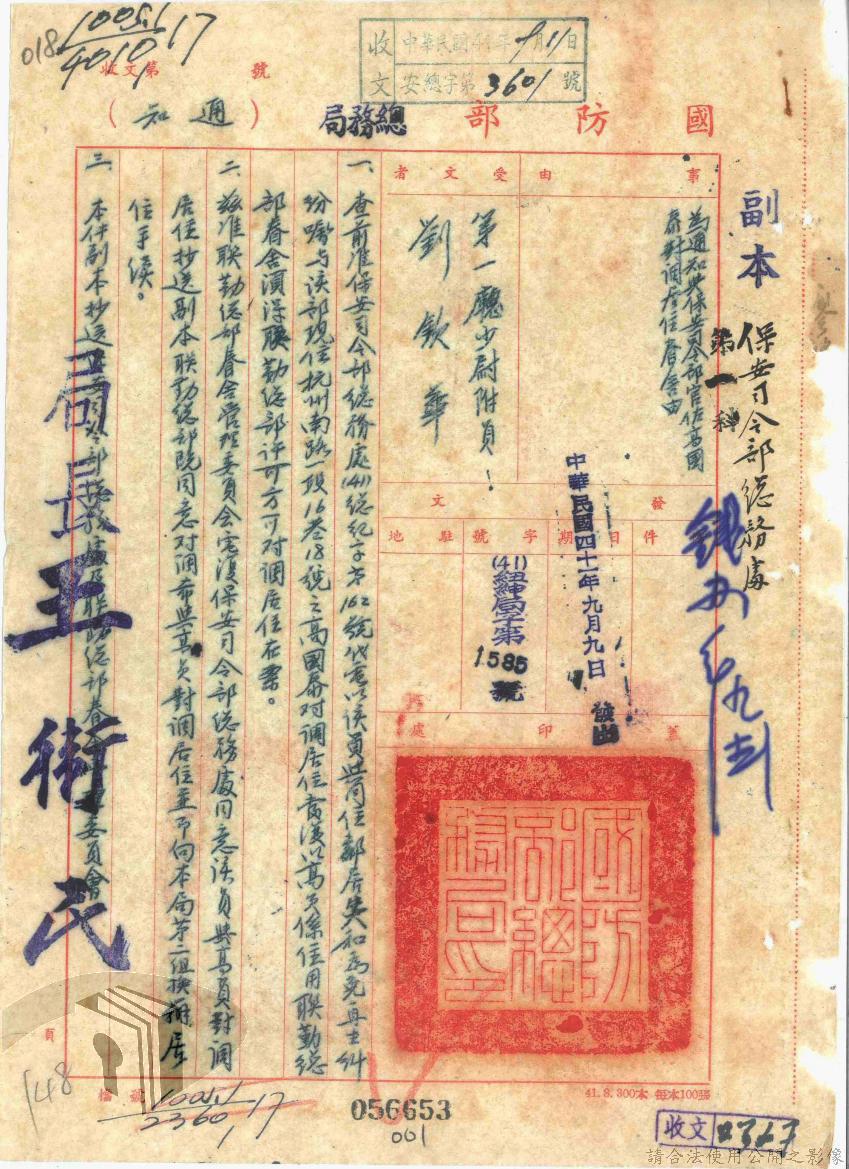 018
10051
4010
17
收文第　號
收文
中華民國41年9月11日
安總字第3601號
國防部總務局（通知）
副本
保安司令部總務處
第一科
事由
為通知與保安司令部官佐高國
泰對調居住眷舍由
受文者
第一廳少尉附員！
劉欽華
發文
件
日期
字號
駐地
中華民國四十一年九月九日
發出
(41)紐紳局字第
1585
號
蓋印處
國防部總務局印
一、查前准保安司令部總務處(41)總紀字第162號代電以該員與同住鄰居失和為免再生糾
紛囑與該部現住杭州南路一段16巷18號之高國泰对調居住當復以高員係住用聯勤總
部眷舍須得聯勤總部許可方可对調居住在案。
二、茲准聯勤總部眷舍管理委員會電復保安司令部總務處同意該員與高員對調
居住抄送副本聯勤總部既同意对調希與高員對調居住並即向本局第二組換辦居
住手續。
三、本件副本抄送保安司令部總務處及聯勤總部眷舍管理委員會
局長王衛民
頁
148
檔號
10051
2360
17
056653
001
41.8.300本 每本100張
收文
0367
請合法使用公開之影像